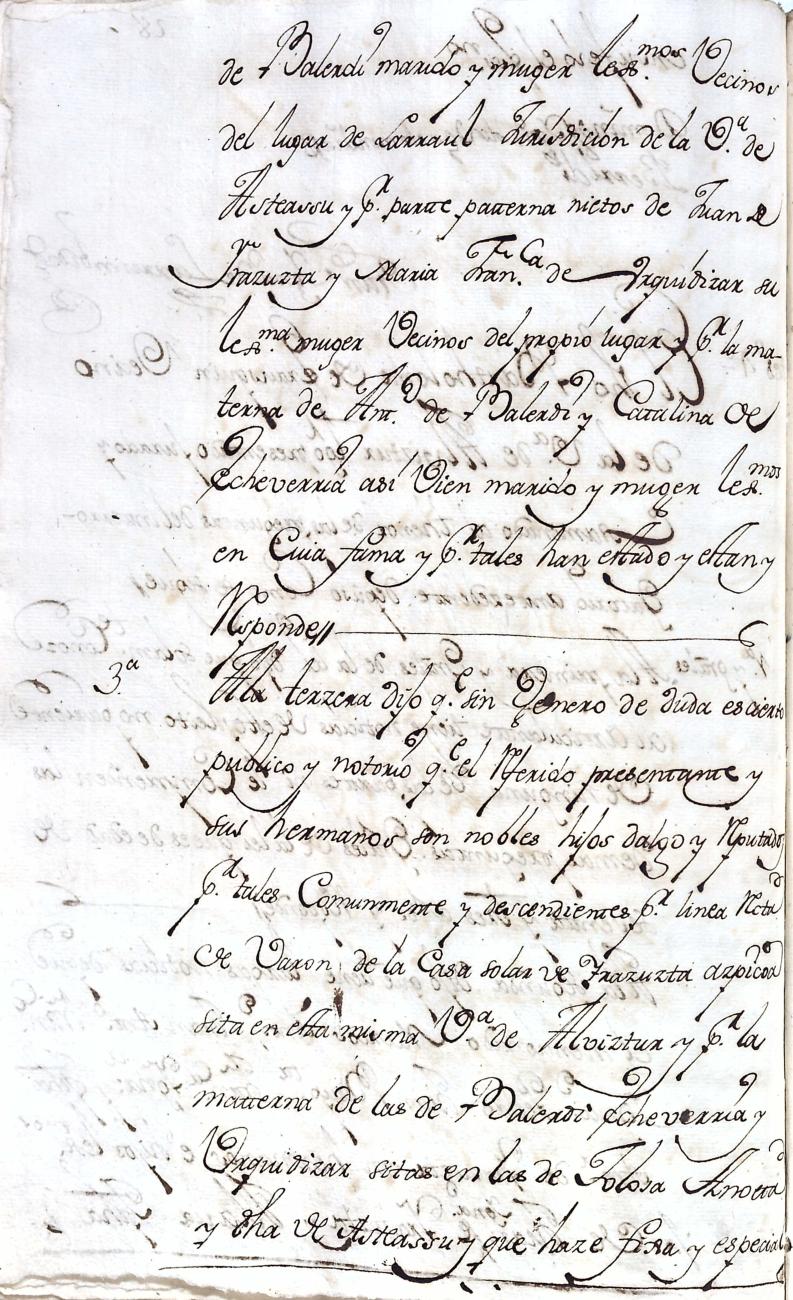 de Balerdi marido y muger lexmos. Vecinos
del lugar de Larraul Jurisdicion de la Va. de
Asteassu y pr. partte patterna nietos de Juan de
Yrazuzta y Maria Franca. de Urquidizar su
lexma. muger Vecinos del propio lugar y pr. la ma-
terna de Anto. de Balerdi y Catalina de
Echeverria asi Vien marido y muger lexmos.
en Cuia fama y pr. tales han estado y estan y
Responde//
3a. A la terzera dijo qe. sin Genero de duda es cierto
publico y notorio qe. el Referido presentante y
sus hermanos son nobles hijos dalgo y Reputados
pr. tales Comunmente y descendientes pr. linea Recta
de Varon de la Casa solar de Yrazuzta azpicoa
sita en esta misma Va. de Alviztur y pr. la
matterna de las de Balerdi Echeverria y
Urquidizar sitas en las de Tolosa Anoeta
y dha de Asteassu y que haze fixa y especial